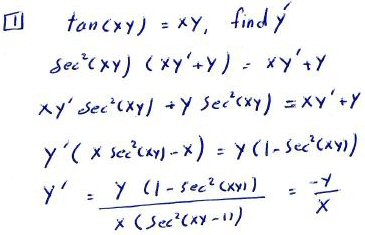 1 tan(xy) = xy, find y'
sec²(xy) (xy'+y) = xy'+y
xy' sec²(xy) + y sec²(xy) = xy'+y
y'( x sec²(xy) - x) = y (1 - sec²(xy))
y' = y (1 - sec²(xy)) / x (sec²(xy - 1)) = -y / x